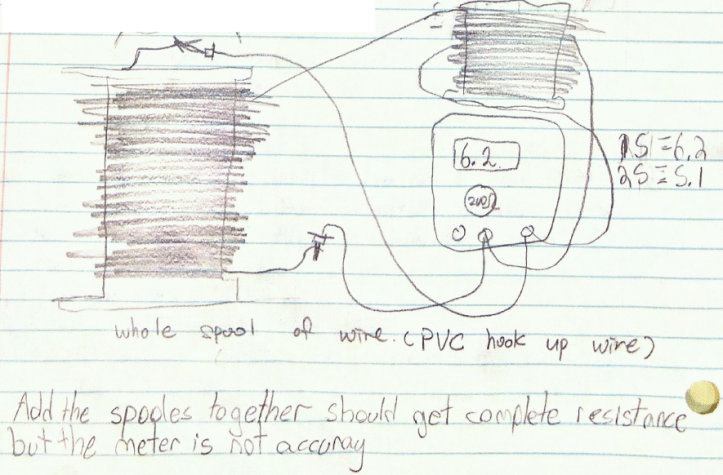 6.2
200Ω
1S1=6.2
2S=5.1
whole spool of wire. (PVC hook up wire)
Add the spooles together should get complete resistance
but the meter is not accuray